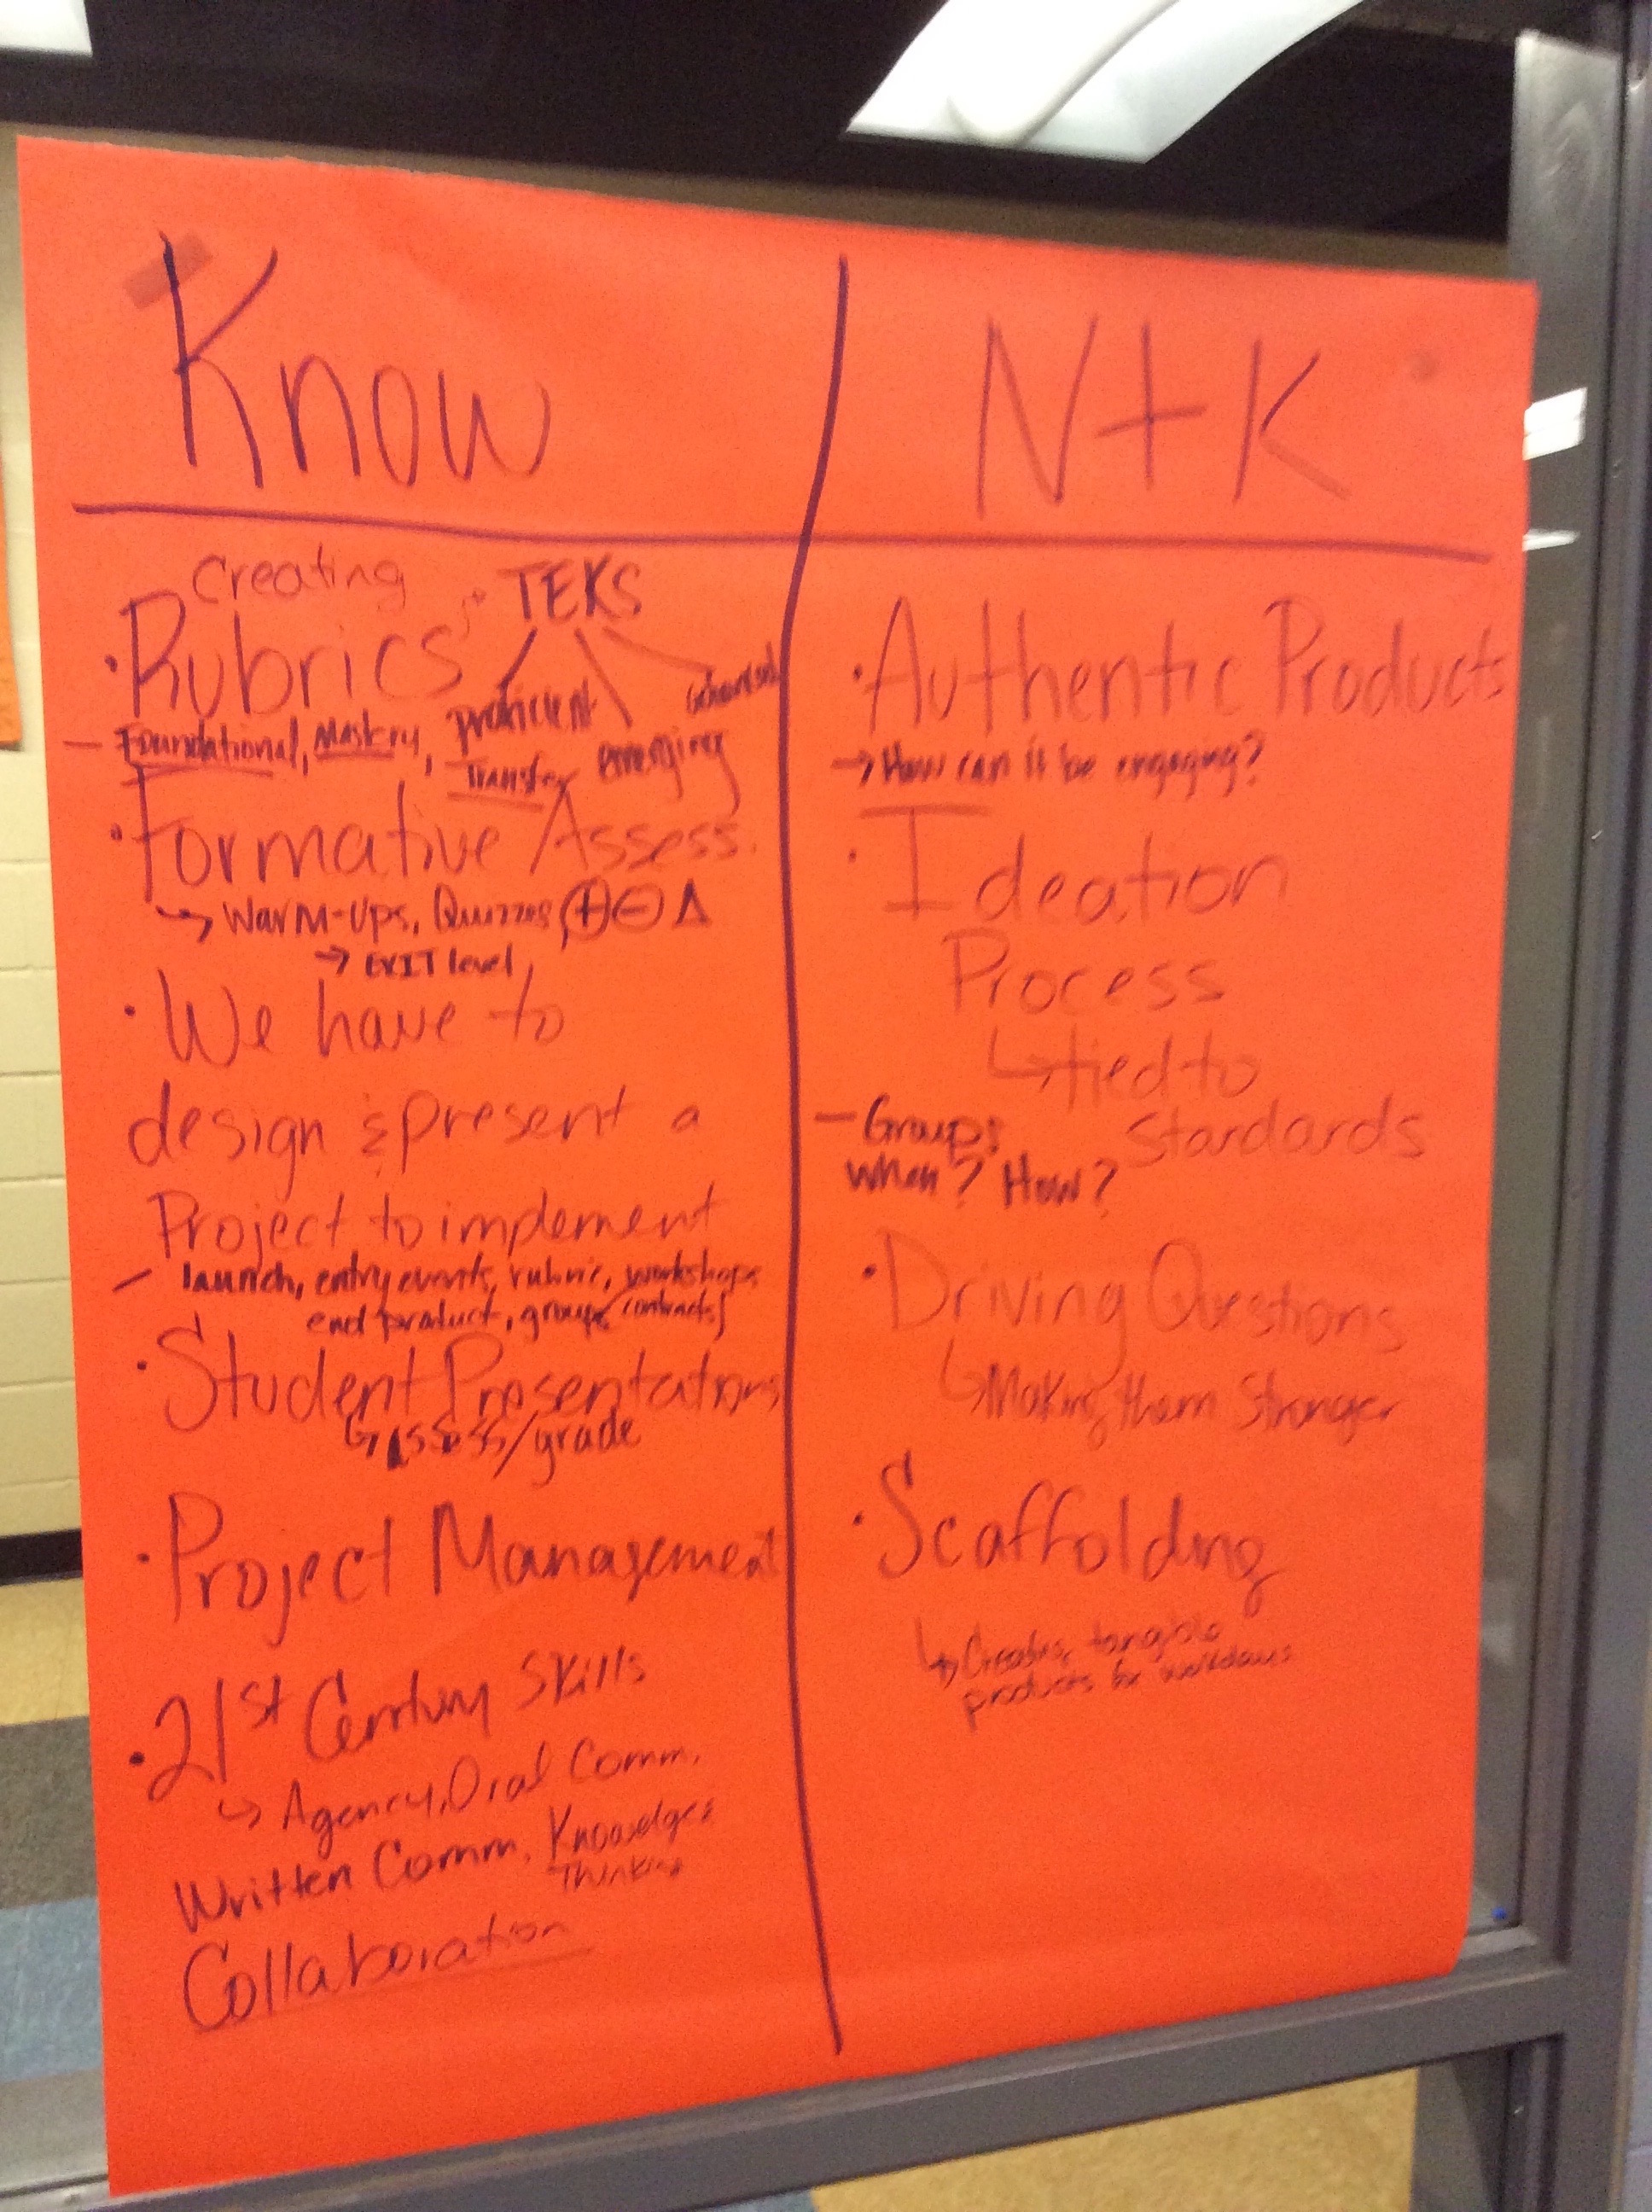 Know
Creating
• Rubrics
• TEKS
proficient
emerging
— Foundational, Mastery,
Transfer
• Formative Assess.
↳ Warm-ups, Quizzes, ⊕ ⊖ Δ
→ EXIT level
• We have to
design & present a
Project to implement
— launch, entry events, rubric, workshops
end product, groups contracts
• Student Presentations
↳ Assess/grade
• Project Management
• 21st Century Skills
↳ Agency, Oral Comm.
Written Comm, Knowledge &
Thinking
Collaboration
N+K
• Authentic Products
→ How can it be engaging?
• Ideation
Process
↳ tied to
Standards
— Groups
when? How?
• Driving Questions
↳ Making them Stronger
• Scaffolding
↳ Creating tangible
products for workdays